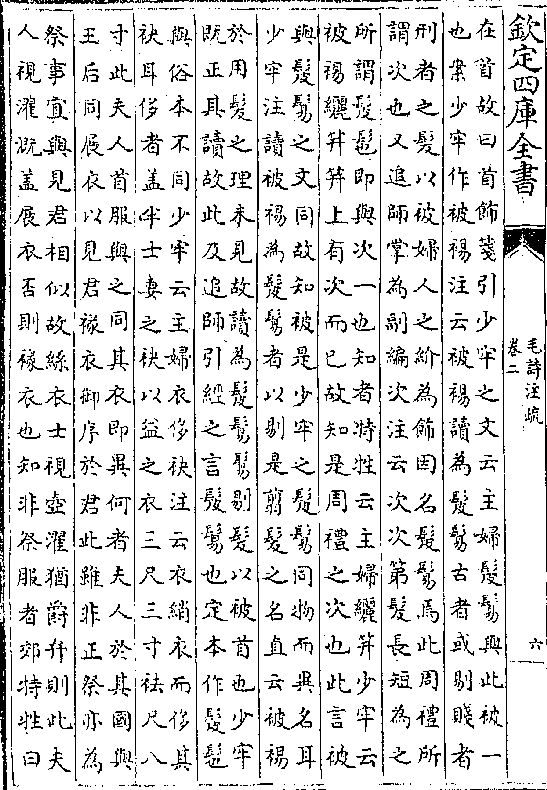 欽定四庫全書
毛詩注疏
卷二
六
在首故曰首飾箋引少牢之文云主婦髲鬄與此被一
也案少牢作被裼注云被裼讀為髲鬄古者或剔賤者
刑者之髮以被婦人之紒為飾因名髲鬄焉此周禮所
謂次也又追師掌為副編次注云次次第髮長短為之
所謂髲髢即與次一也知者特牲云主婦纚笄少牢云
被裼纚笄笄上有次而已故知是周禮之次也此言被
與髲鬄之文同故知被是少牢之髲鬄同物而異名耳
少牢注讀被裼為髲鬄者以剔是翦髮之名直云被裼
於用髮之理未見故讀為髲鬄鬄剔髮以被首也少牢
既正其讀故此及追師引經之言髲鬄也定本作髲髢
與俗本不同少牢云主婦衣侈袂注云衣綃衣而侈其
袂耳侈者蓋半士妻之袂以益之衣三尺三寸袪尺八
寸此夫人首服與之同其衣即異何者夫人於其國與
王后同展衣以見君褖衣御序於君此雖非正祭亦為
祭事宜與見君相似故絲衣士視壺濯猶爵弁則此夫
人視濯溉蓋展衣否則褖衣也知非祭服者郊特牲曰